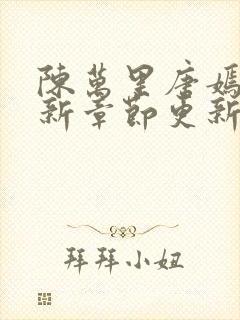 陳萬里唐嫣
新章節更新
拜拜小姐